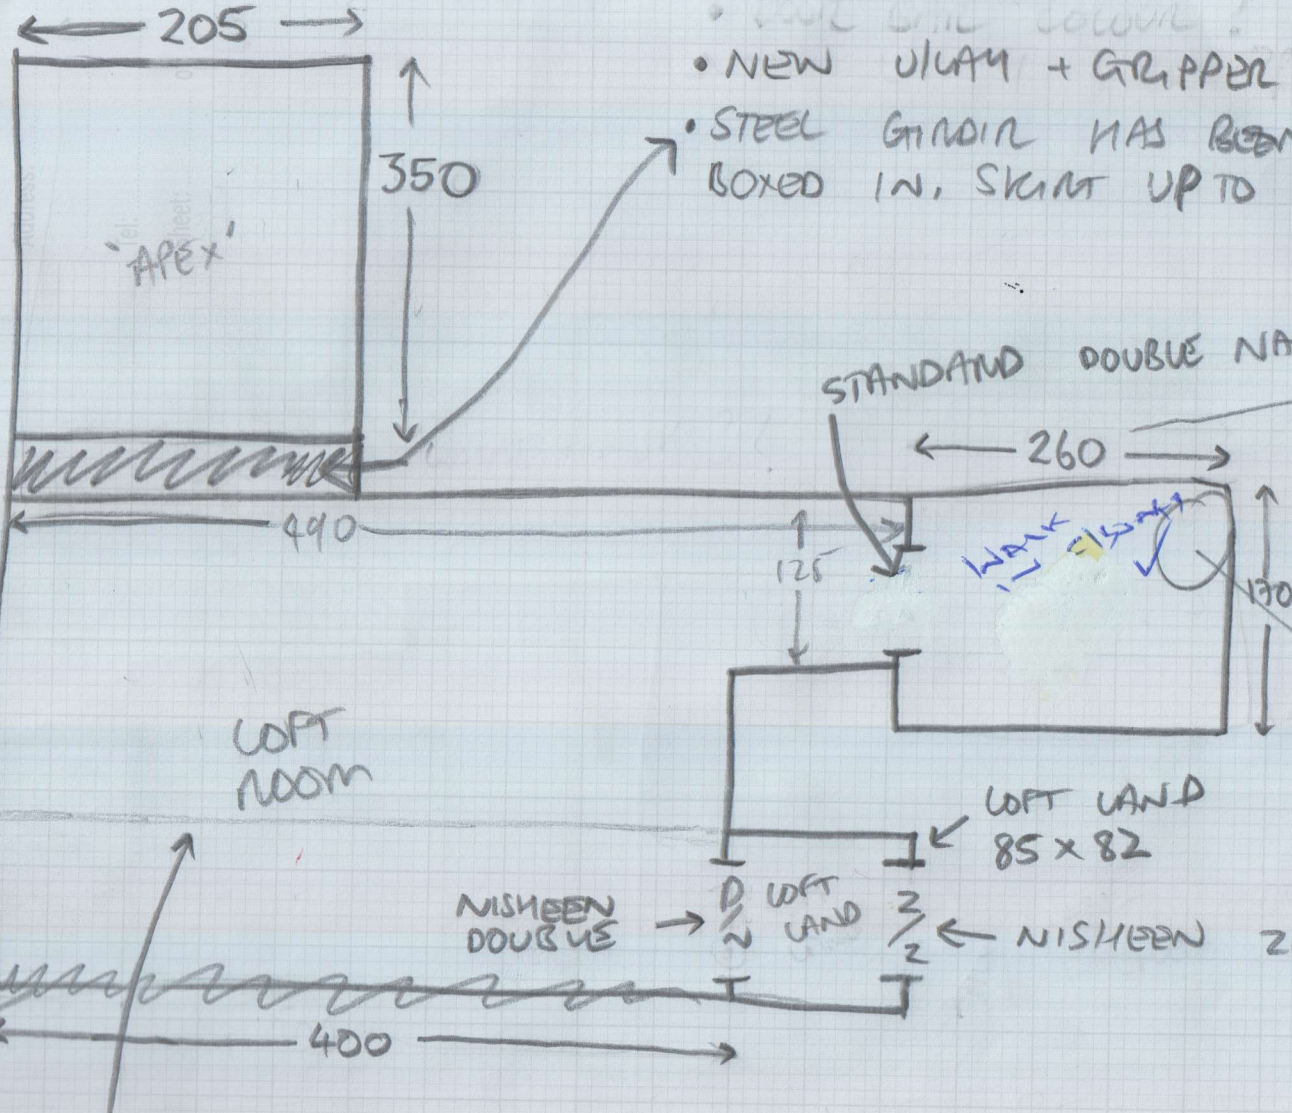 205
• NEW U/LAY + GRIPPER
• STEEL GIRDIR HAS BEEN
BOXED IN. SKIRT UP TO
350
'APEX'
STANDARD DOUBLE NA
260
490
125
WALK
170
LOFT
ROOM
LOFT LAND
85 x 82
NISHEEN
DOUBLE
D/N
LOFT
LAND
Z/2
NISHEEN 2
400